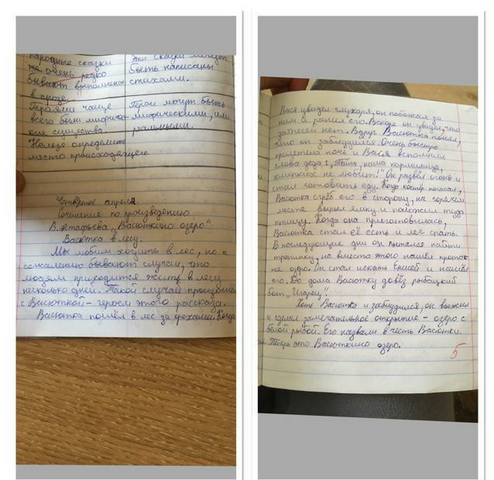 народные сказки
не очень редко
бывают
в
Герои чаще
всего были
или существа.
Нельзя определить
место происходящего.
Эти сказки могут
быть написаны
стихами.
Герои могут быть
мифическими, или
реальными.
апреля
Сочинение по произведению
В. Астафьева „Васюткино озеро“
Васютка в лесу.
Мы любим ходить в лес, но к
сожалению бывают случаи, что
людям приходится жить в лесу
несколько дней. Такой случай произошёл
с Васюткой – героем этого рассказа.
Васютка пошёл в лес за орехами. Когда
Вася увидел глухаря, он побежал за
ним и ранил его. Вскоре он увидел, что
нет. Вдруг Васютка понял,
что он заблудился. Очень быстро
ночь и Вася вспомнил
слова деда „Тайга, наша кормилица,
не любит!“ Он развёл огонь и
стал готовить еду. Когда костёр
Васютка сгрёб его в сторону, на горячем
месте вырыл ямку и положил туда
птицу. Когда она приготовилась,
Васютка стал её есть и лёг спать.
В последующие дни он пытался найти
тропинку, но вместо этого нашёл
озеро. Он стал искать Енисей и нашёл
его. До дома Васютку довёз рыбацкий
бот „Игарец“.
Хоть Васютка и заблудился, он
сделал замечательное открытие – озеро с
белой рыбой. Его назвали в честь Васютки.
Теперь это Васюткино озеро.
5